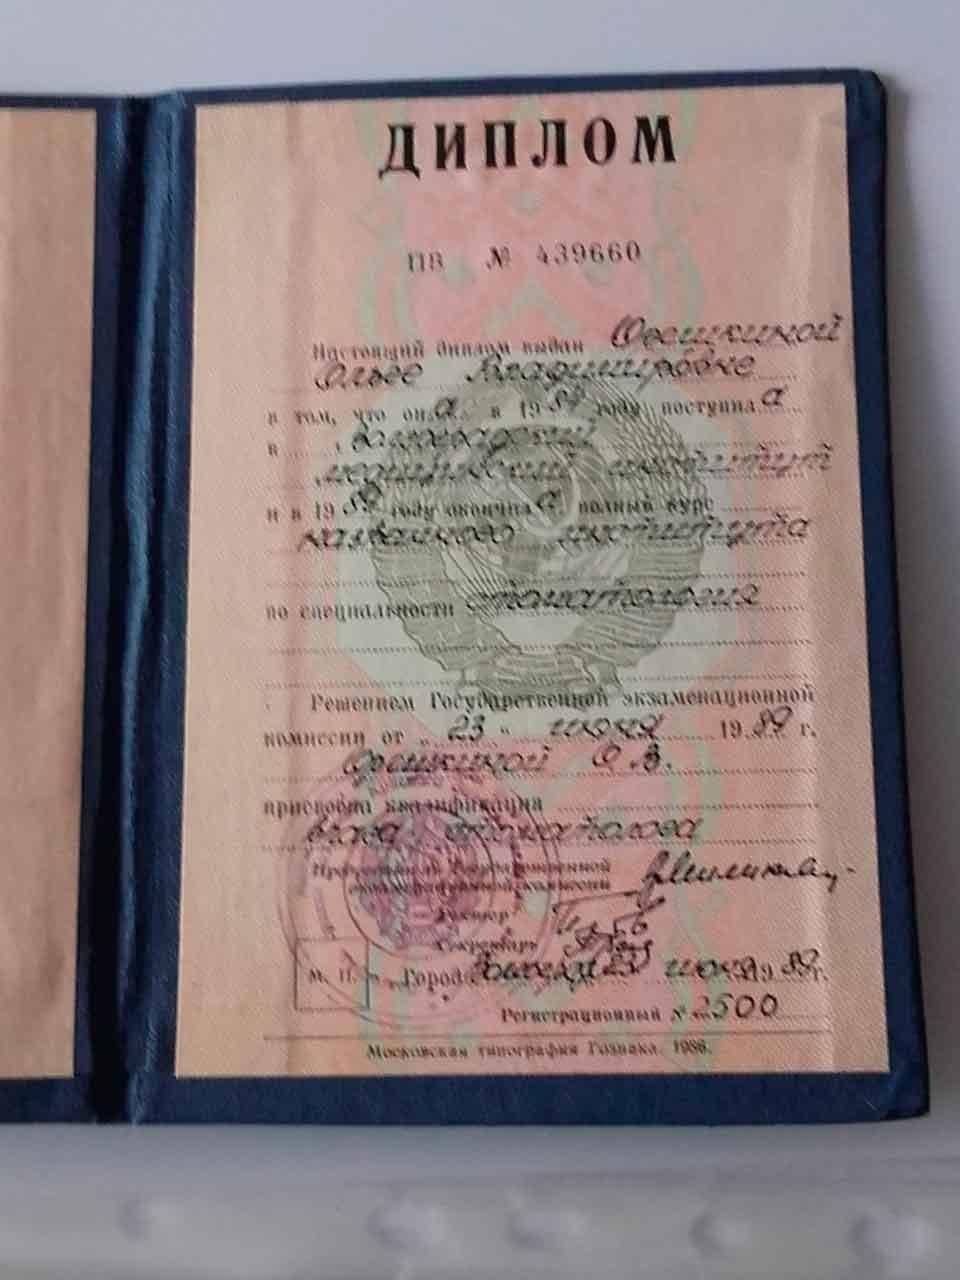 ДИПЛОМ
ПВ № 439660
Настоящий диплом выдан Орешкиной
Ольге Владимировне
в том, что она в 1984 году поступила
в Волгоградский
медицинский институт
и в 1989 году окончила полный курс
названного института
по специальности стоматология
Решением Государственной экзаменационной
комиссии от „23" июня 1989 г.
Орешкиной О.В.
присвоена квалификация
врача стоматолога
Председатель Государственной
экзаменационной комиссии
Ректор
Секретарь
М. П. Город Волгоград 23 июня 1989 г.
Регистрационный № 2500
Московская типография Гознака. 1986.